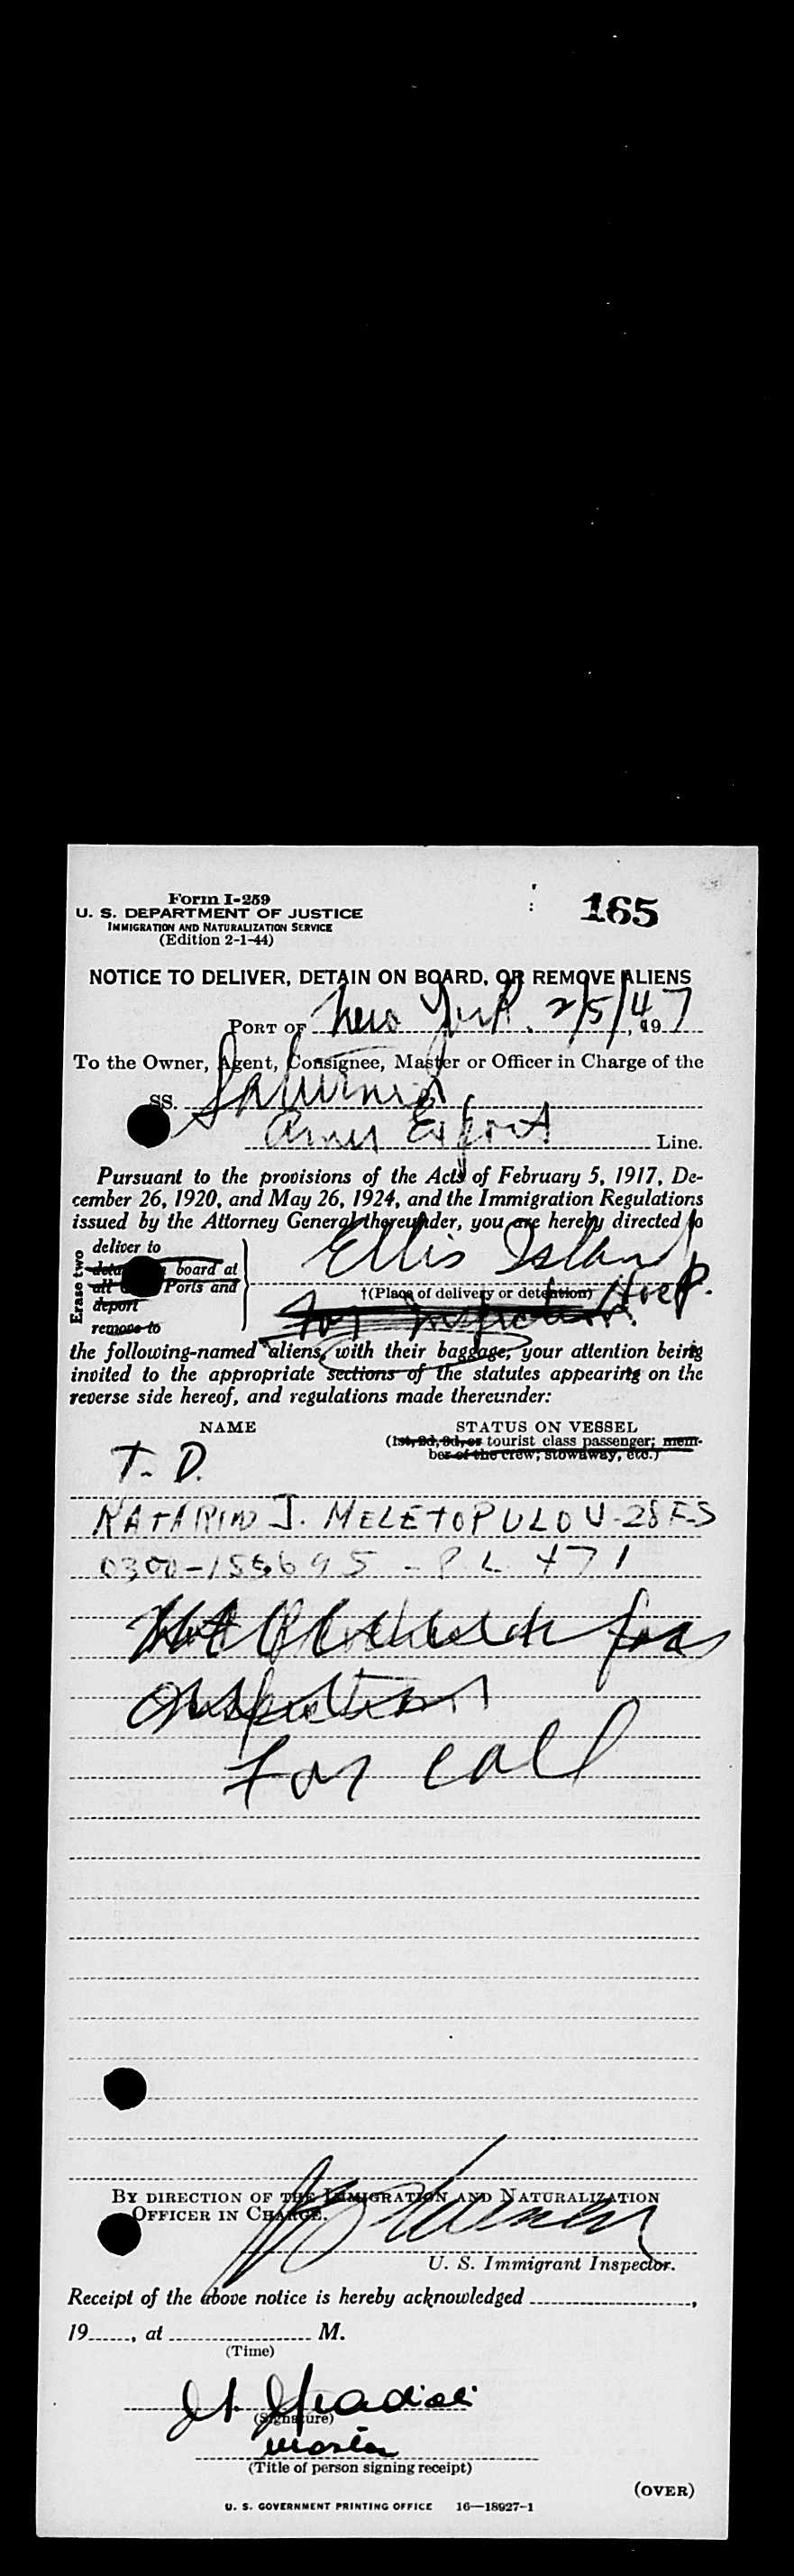 Form I-259
165
U. S. DEPARTMENT OF JUSTICE
IMMIGRATION AND NATURALIZATION SERVICE
(Edition 2-1-44)
NOTICE TO DELIVER, DETAIN ON BOARD, OR REMOVE ALIENS
PORT OF New York. 2/5/47, 19
To the Owner, Agent, Consignee, Master or Officer in Charge of the
SS. Saturnia
Amer Export Line.
Pursuant to the provisions of the Acts of February 5, 1917, De-
cember 26, 1920, and May 26, 1924, and the Immigration Regulations
issued by the Attorney General thereunder, you are hereby directed to
Erase two
deliver to
board at
all Ports and
deport
remove to
Ellis Island
†(Place of delivery or detention)
Hosp.
for inspection.
the following-named aliens, with their baggage, your attention being
invited to the appropriate sections of the statutes appearing on the
reverse side hereof, and regulations made thereunder:
NAME STATUS ON VESSEL
(1st, 2d, 3d, or tourist class passenger; mem-
ber of the crew; stowaway, etc.)
T. D.
J. MELETOPULOU-28 F-S
0300-155695 - P L 471
for
inspection
For call
BY DIRECTION OF THE IMMIGRATION AND NATURALIZATION
OFFICER IN CHARGE.
U. S. Immigrant Inspector.
Receipt of the above notice is hereby acknowledged
19, at M.
(Time)
(Signature)
Master
(Title of person signing receipt)
(OVER)
U. S. GOVERNMENT PRINTING OFFICE 16—18927-1